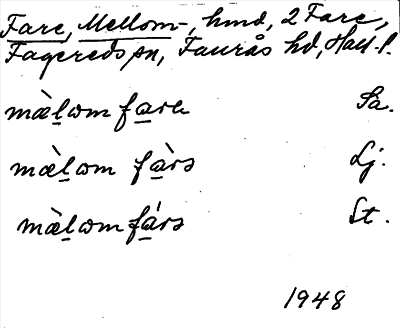 Fare, Mellom-, hmd, 2 Fare,
Fagereds sn, Faurås hd, Hall. l.
mæ̀lom fare Sa.
mæ̀lom fàrs Lj.
mæ̀lom fárs St.
1948